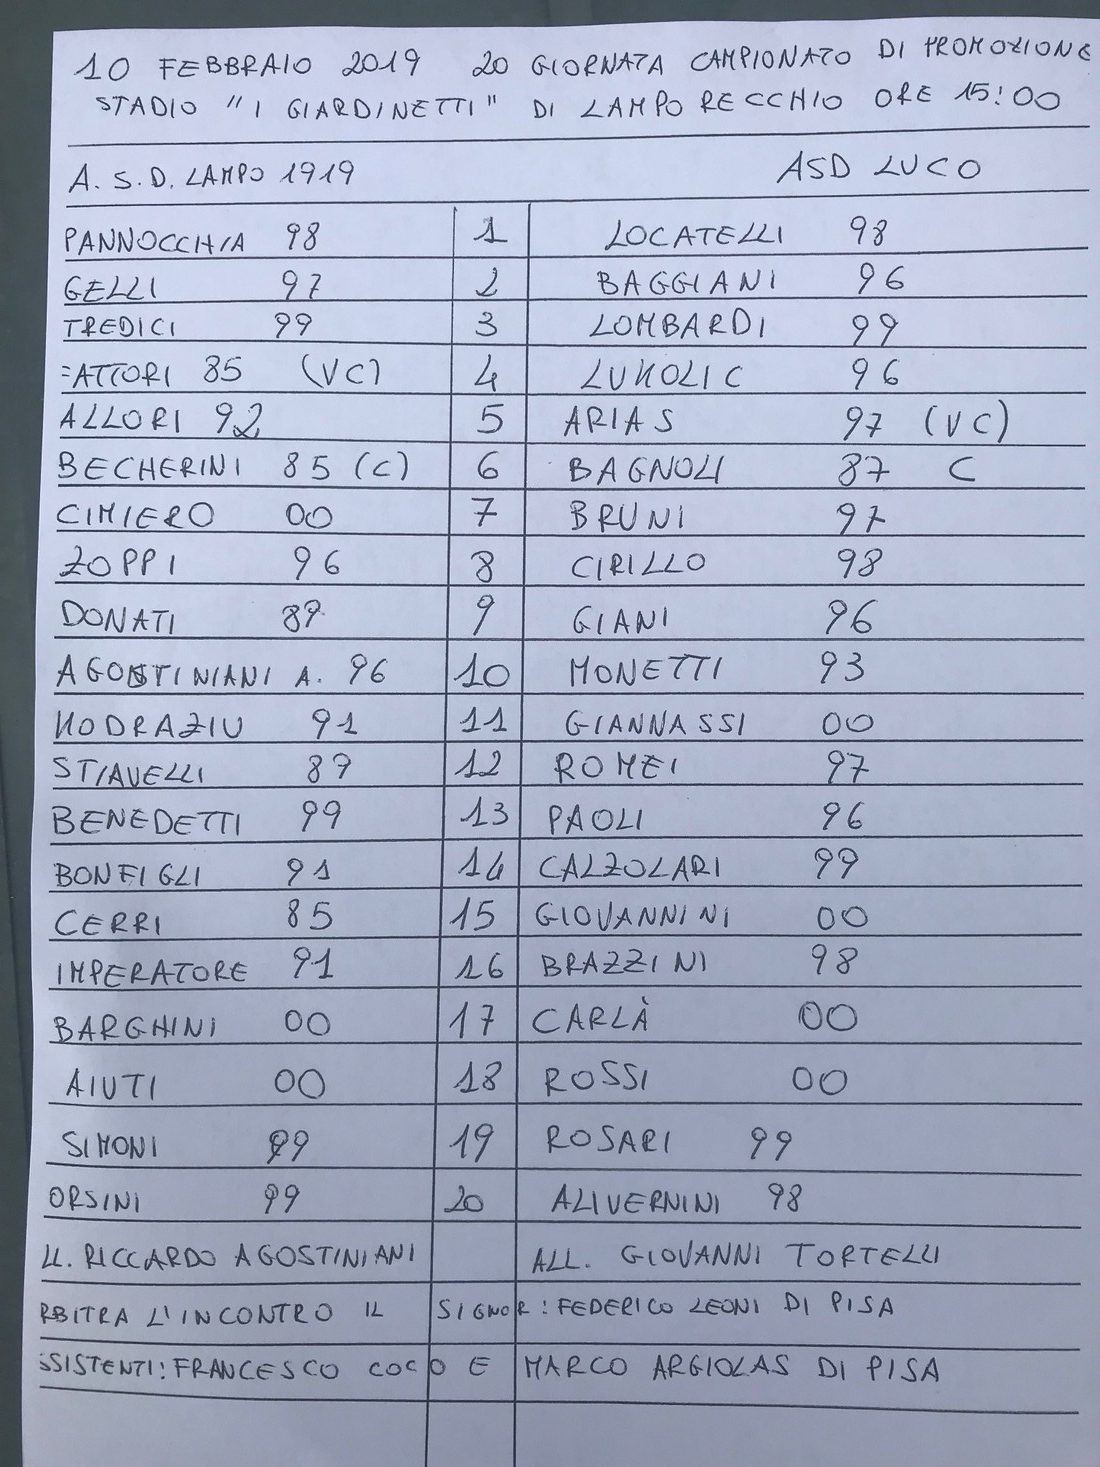 10 FEBBRAIO 2019 20 GIORNATA CAMPIONATO DI PROMOZIONE
STADIO "I GIARDINETTI" DI LAMPORECCHIO ORE 15:00
A. S. D. LAMPO 1919 ASD LUCO
PANNOCCHIA 98 1 LOCATELLI 98
GELLI 97 2 BAGGIANI 96
TREDICI 99 3 LOMBARDI 99
FATTORI 85 (VC) 4 LUKOLIC 96
ALLORI 92 5 ARIAS 97 (VC)
BECHERINI 85 (C) 6 BAGNOLI 87 C
CIMIERO 00 7 BRUNI 97
ZOPPI 96 8 CIRILLO 98
DONATI 87 9 GIANI 96
AGOSTINIANI A. 96 10 MONETTI 93
KODRAZIU 91 11 GIANNASSI 00
STIAVELLI 87 12 ROMEI 97
BENEDETTI 99 13 PAOLI 96
BONFIGLI 91 14 CALZOLARI 99
CERRI 85 15 GIOVANNINI 00
IMPERATORE 91 16 BRAZZINI 98
BARGHINI 00 17 CARLÀ 00
AIUTI 00 18 ROSSI 00
SIMONI 99 19 ROSARI 99
ORSINI 99 20 ALIVERNINI 98
LL. RICCARDO AGOSTINIANI ALL. GIOVANNI TORTELLI
RBITRA L'INCONTRO IL SIGNOR: FEDERICO LEONI DI PISA
SSISTENTI: FRANCESCO COCO E MARCO ARGIOLAS DI PISA